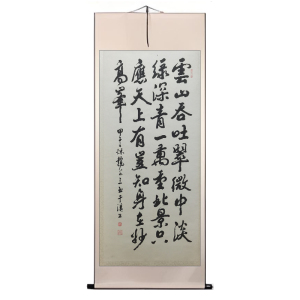 雲山吞吐翠微中淡
綠深青一萬重此景只
應天上有豈知身在妙
高峯
甲子